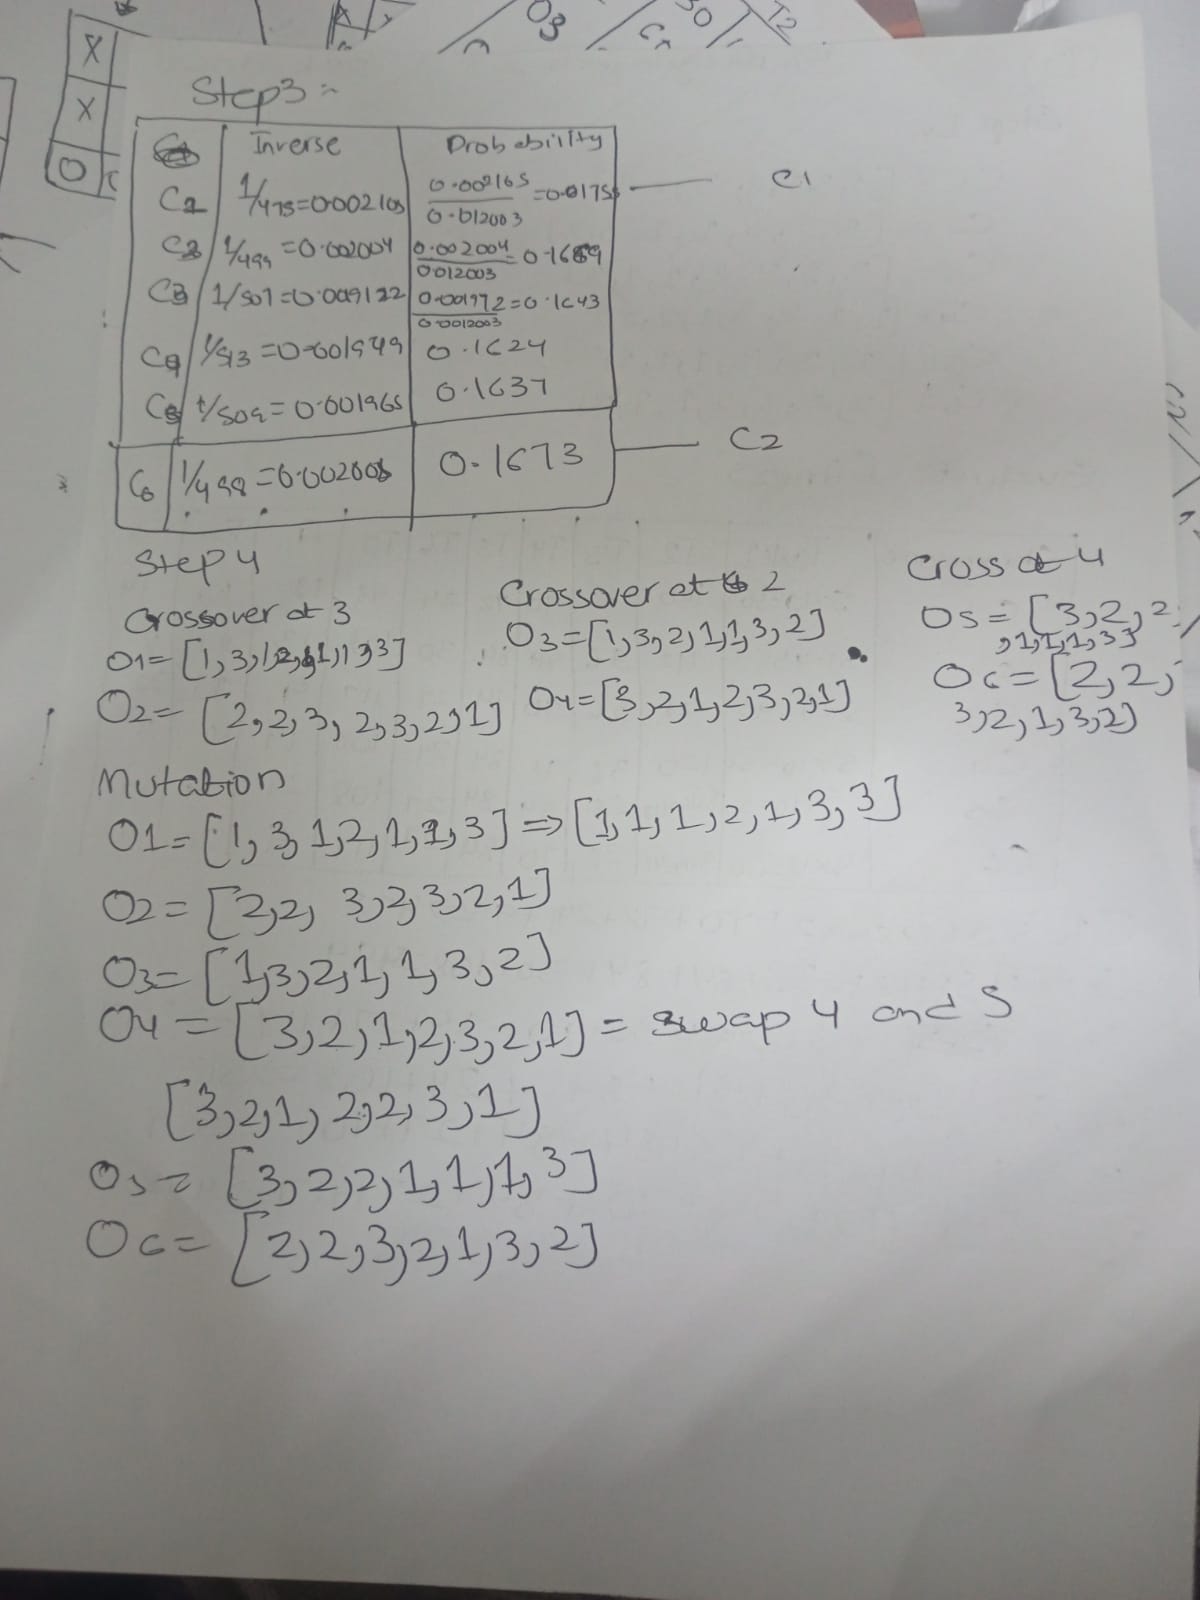 X
X
O
O3
C
30
T2
Step3 :-
Inverse Probability
C1 1/475=0.002105 0.002165/0.012003 =0.01755 — C1
C2 1/499 =0.002004 0.002004/0012003 = 0.1669
C3 1/507=0.009122 0.001972/0.0012003 =0.1643
C4 1/513 =0.001949 0.1624
C5 1/509=0.001965 0.1637
C6 1/498=0.002008 0.1673 — C2
Step 4
Crossover at 3
O1=[1,3,1,2,1,1,3]
O2= [2,2,3, 2,3,2,1]
Crossover at 2
O3=[1,3,2,1,1,3,2]
O4=[3,2,1,2,3,2,1]
Cross at 4
O5= [3,2,2
,1,1,1,3]
O6= [2,2,
3,2,1,3,2]
Mutation
O1=[1,3,1,2,1,1,3] ⇒ [1,1,1,2,1,3,3]
O2= [2,2, 3,2,3,2,1]
O3= [1,3,2,1,1,3,2]
O4 = [3,2,1,2,3,2,1] = swap 4 and 5
[3,2,1, 2,2,3,1]
O5= [3,2,2,1,1,1,3]
O6= [2,2,3,2,1,3,2]